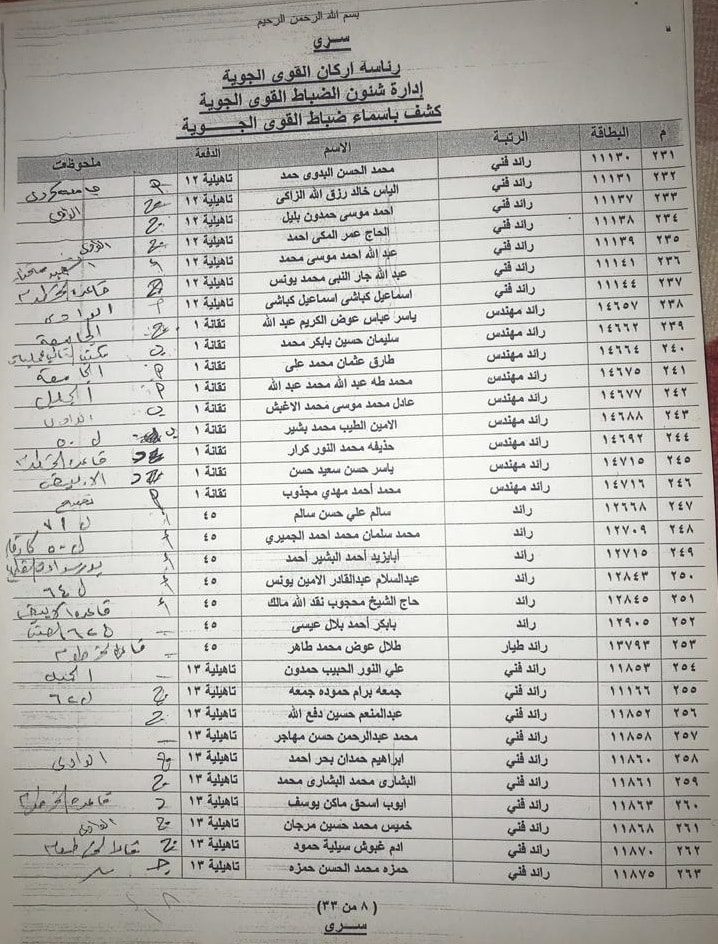 بسم الله الرحمن الرحيم
سري
رئاسة اركان القوى الجوية
إدارة شئون الضباط القوى الجوية
كشف باسماء ضباط القوى الجـــــوية
م البطاقة الرتبة الاسم الدفعة ملحوظات
٢٣١ ١١١٣٠ رائد فني محمد الحسن البدوى حمد تاهيلية ١٢
٢٣٢ ١١١٣١ رائد فني الياس خالد رزق الله الزاكى تاهيلية ١٢
٢٣٣ ١١١٣٧ رائد فني احمد موسى حمدون بليل تاهيلية ١٢
٢٣٤ ١١١٣٨ رائد فني الحاج عمر المكى احمد تاهيلية ١٢
٢٣٥ ١١١٣٩ رائد فني عبد الله احمد موسى محمد تاهيلية ١٢
٢٣٦ ١١١٤١ رائد فني عبد الله جار النبى محمد يونس تاهيلية ١٢ قاعدة
٢٣٧ ١١١٤٤ رائد فني اسماعيل كباشى اسماعيل كباشى تاهيلية ١٢ م الوادى
٢٣٨ ١٤٦٥٧ رائد مهندس ياسر عباس عوض الكريم عبد الله تقانة ١ الجامعة
٢٣٩ ١٤٦٦٢ رائد مهندس سليمان حسين بابكر محمد تقانة ١
٢٤٠ ١٤٦٦٤ رائد مهندس طارق عثمان محمد على تقانة ١ م الجامعة
٢٤١ ١٤٦٧٥ رائد مهندس محمد طه عبد الله محمد عبد الله تقانة ١ م
٢٤٢ ١٤٦٧٧ رائد مهندس عادل محمد موسى محمد الاغبش تقانة ١
٢٤٣ ١٤٦٨٨ رائد مهندس الامين الطيب محمد بشير تقانة ١
٢٤٤ ١٤٦٩٢ رائد مهندس حذيفه محمد النور كرار تقانة ١ قاعدة
٢٤٥ ١٤٧١٥ رائد مهندس ياسر حسن سعيد حسن تقانة ١
٢٤٦ ١٤٧١٦ رائد مهندس محمد أحمد مهدي مجذوب تقانة ١ م
٢٤٧ ١٢٦٦٨ رائد سالم علي حسن سالم ٤٥
٢٤٨ ١٢٧٠٩ رائد محمد سلمان محمد احمد الجميري ٤٥
٢٤٩ ١٢٧١٥ رائد أبايزيد أحمد البشير أحمد ٤٥
٢٥٠ ١٢٨٤٣ رائد عبدالسلام عبدالقادر الامين يونس ٤٥
٢٥١ ١٢٨٤٥ رائد حاج الشيخ محجوب نقد الله مالك ٤٥ قاعدة
٢٥٢ ١٢٩٠٥ رائد بابكر أحمد بلال عيسى ٤٥
٢٥٣ ١٣٧٩٣ رائد طيار طلال عوض محمد طاهر ٤٥
٢٥٤ ١١٨٥٣ رائد فني علي النور الحبيب حمدون تاهيلية ١٣
٢٥٥ ١١١٦٦ رائد فني جمعه برام حموده جمعه تاهيلية ١٣ ج
٢٥٦ ١١٨٥٢ رائد فني عبدالمنعم حسين دفع الله تاهيلية ١٣ ج
٢٥٧ ١١٨٥٨ رائد فني محمد عبدالرحمن حسن مهاجر تاهيلية ١٣
٢٥٨ ١١٨٦٠ رائد فني ابراهيم حمدان بحر احمد تاهيلية ١٣ ج الوادى
٢٥٩ ١١٨٦١ رائد فني البشارى محمد البشارى محمد تاهيلية ١٣ ج
٢٦٠ ١١٨٦٣ رائد فني ايوب اسحق ماكن يوسف تاهيلية ١٣ قاعدة
٢٦١ ١١٨٦٨ رائد فني خميس محمد حسين مرجان تاهيلية ١٣ ج
٢٦٢ ١١٨٧٠ رائد فني ادم غبوش سيلية حمود تاهيلية ١٣ ج
٢٦٣ ١١٨٧٥ رائد فني حمزه محمد الحسن حمزه تاهيلية ١٣
( ٨ من ٣٣)
سرى